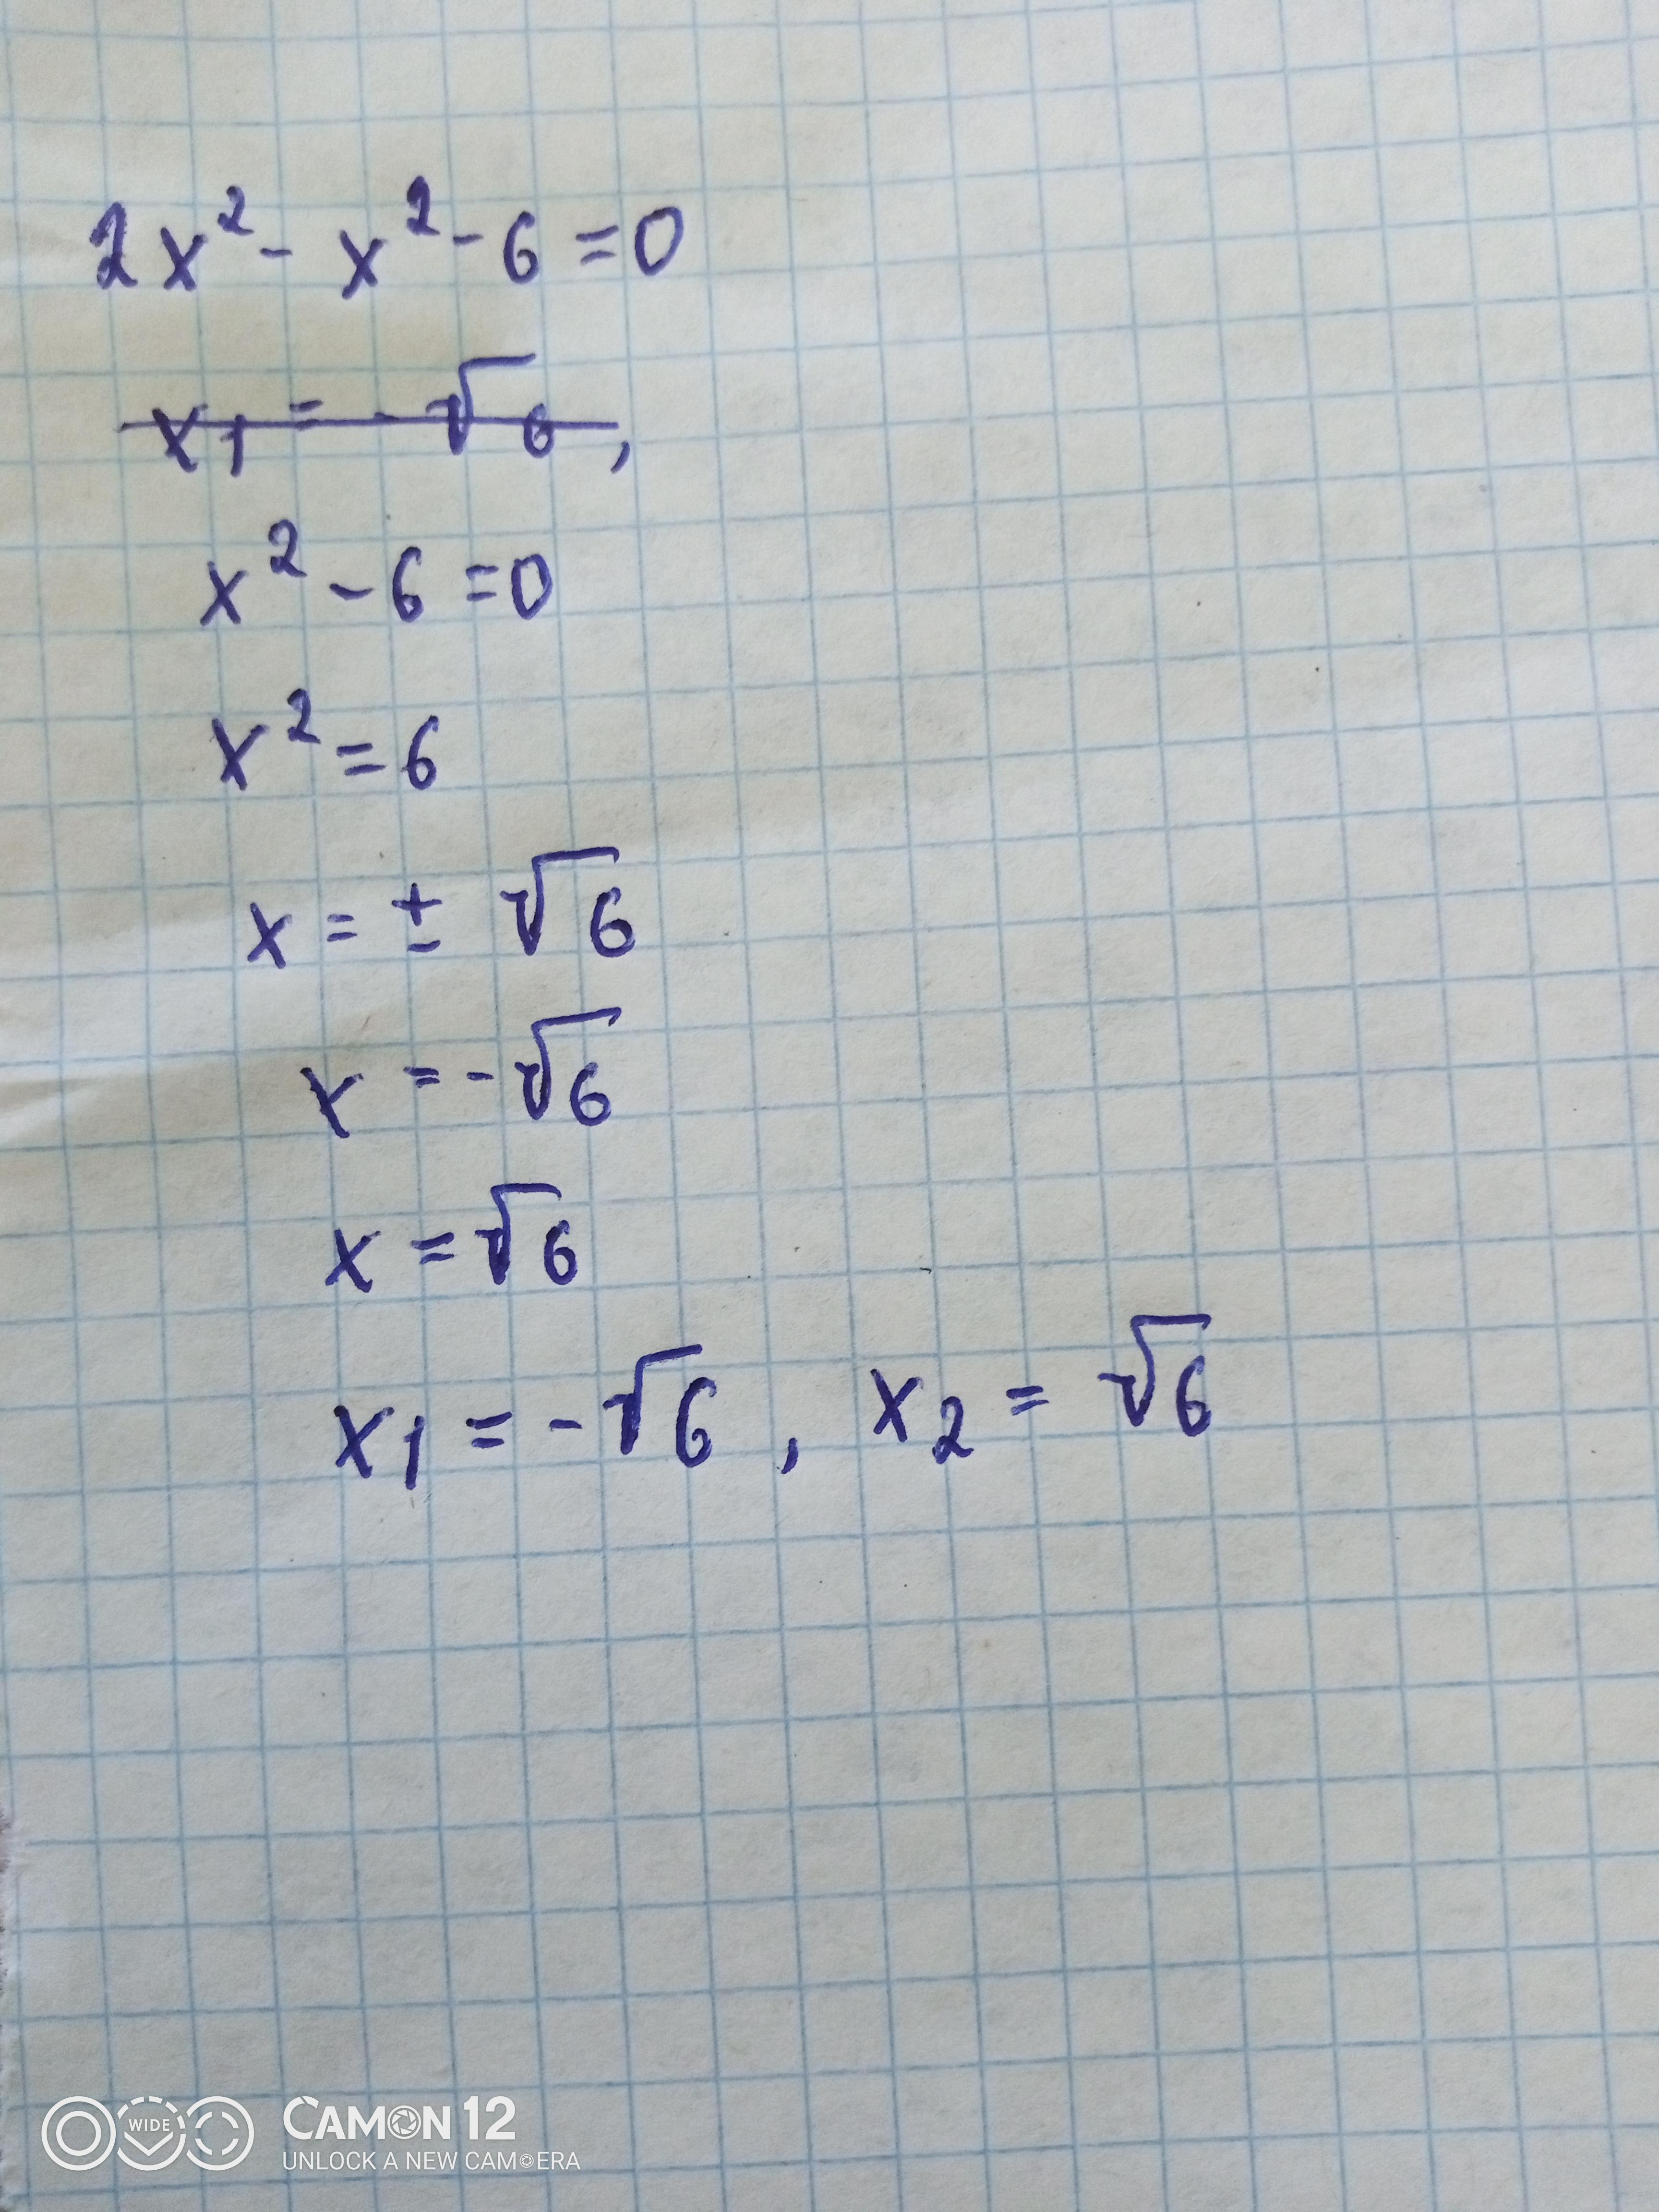 2x² - x² - 6 = 0
x₁ = - √6 ,
x² - 6 = 0
x² = 6
x = ± √6
x = - √6
x = √6
x₁ = - √6 , x₂ = √6
WIDE
CAMON 12
UNLOCK A NEW CAMERA